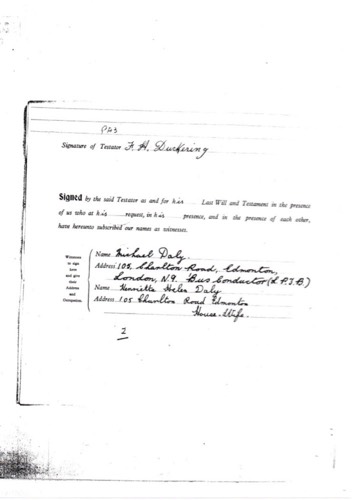 P43
Signature of Testator F. H. Duckering
Signed by the said Testator as and for his Last Will and Testament in the presence
of us who at his request, in his presence, and in the presence of each other,
have hereunto subscribed our names as witnesses.
Witnesses
to sign
here
and give
their
Address
and
Occupation
Name Michael Daly.
Address 105, Charlton Road, Edmonton,
London, N.9. Bus Conductor (L.P.T.B)
Name Henrietta Helen Daly
Address 105 Charlton Road Edmonton
House-Wife.
2